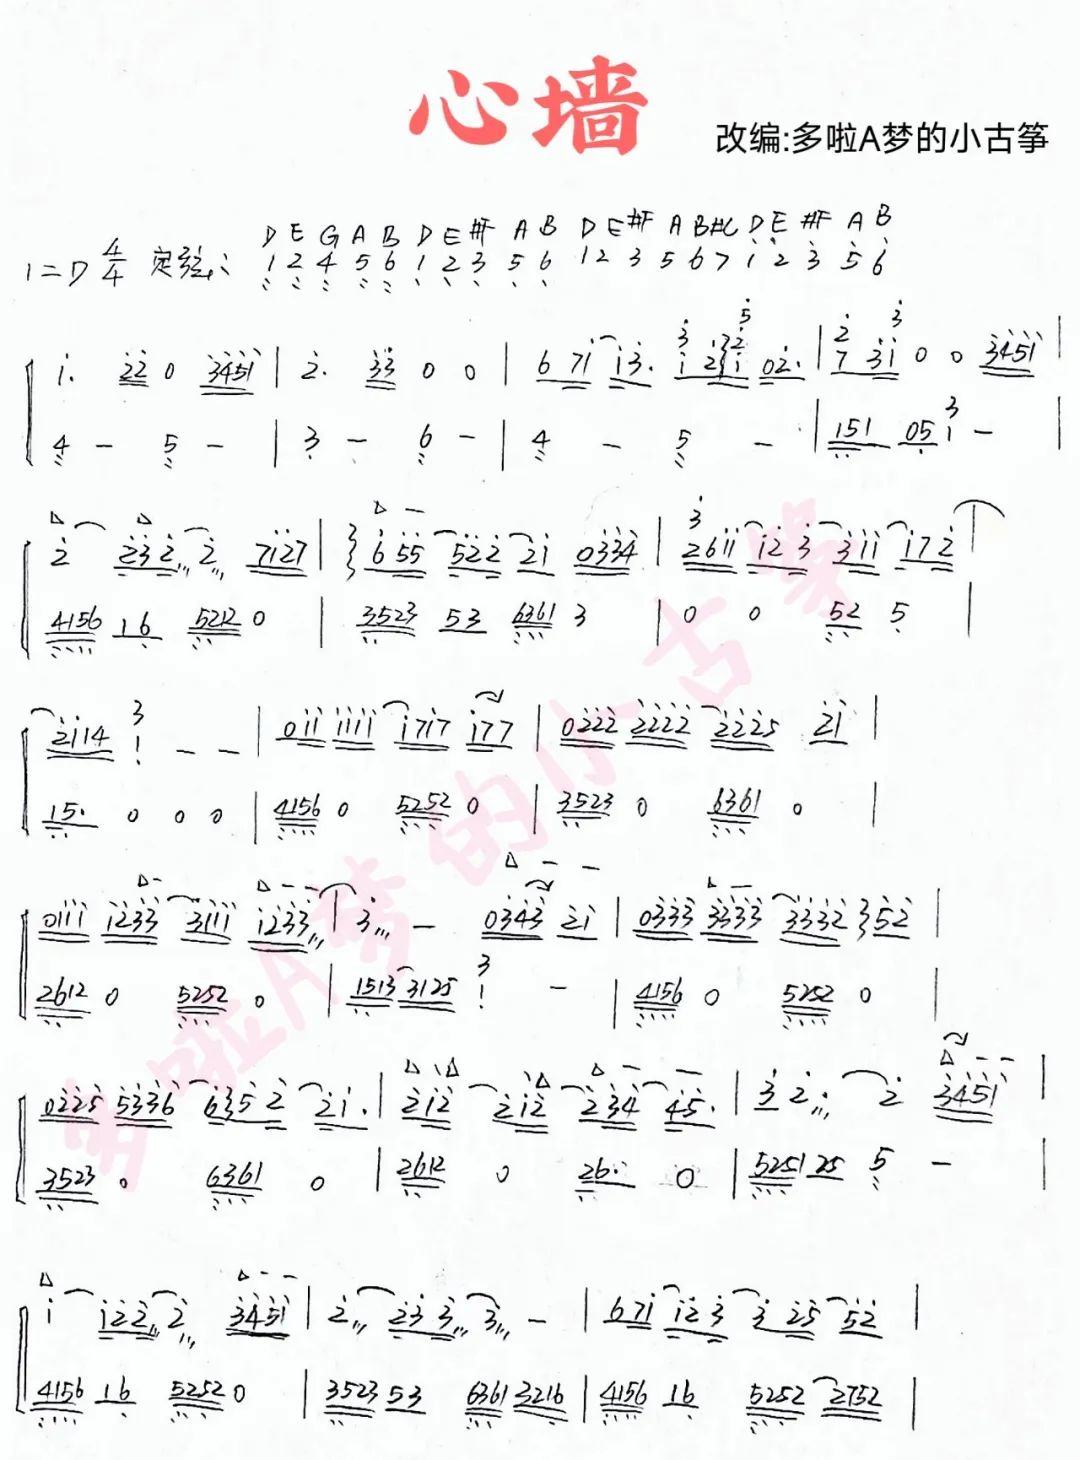 心墙
改编:多啦A梦的小古筝
D E G A B D E #F A B D E #F A B #C D E #F A B
1=D 4/4 定弦: 1 2 4 5 6 1 2 3 5 6 1 2 3 5 6 7 1 2 3 5 6
1. 22 0 3451 | 2. 33 0 0 | 6 71 13. 02. | 0 0 3451 |
4 - 5 - | 3 - 6 - | 4 - 5 - | 151 05 1 - |
2 232 2 7127 | 655 522 21 0334 | 2611 123 311 172
4156 16 5212 0 | 3523 53 6361 3 | 0 0 52 5 |
2114 1 - - | 011 1111 1717 177 | 0222 2222 2225 21 |
15. 0 0 0 | 4156 0 5252 0 | 3523 0 6361 0 |
0111 1233 3111 1233 | 3 - 0343 21 | 0333 3333 3332 52 |
2612 0 5252 0 | 1513 3125 1 - | 4156 0 5252 0 |
0225 5336 6352 21. | 212 212 234 45. | 3 2 2 3451 |
3523 0 6361 0 | 2612 0 26. 0 | 5251 25 5 - |
1 122 2 3451 | 2 233 3 - | 671 123 3 25 52 |
4156 16 5252 0 | 3523 53 6361 3216 | 4156 16 5252 2752 |
多啦A梦的小古筝